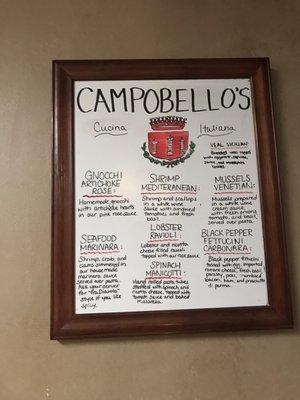 CAMPOBELLO'S
Cucina
Italiana
VEAL SICILIAN
GNOCCHI
ARTICHOKE
ROSE:
Homemade gnocchi
with artichoke hearts
in our pink rose sauce
SHRIMP
MEDITERRANEAN:
Shrimp and scallops
in a white wine
sauce with
tomatoes and fresh
basil.
MUSSELS
VENETIAN:
Mussels prepared
in a white wine
cream sauce
with fresh
tomato, and basil,
served over pasta.
SEAFOOD
MARINARA:
Shrimp, crab, and
clams simmered in
our house made
marinara sauce
served over pasta.
Ask your server
for "Fra Diavolo"
style if you like
spicy.
LOBSTER
RAVIOLI:
Lobster and ricotta
cheese filled ravioli
topped with our rose sauce.
SPINACH
MANICOTTI:
Hand rolled pasta tubes
stuffed with spinach and
ricotta cheese, topped with
tomato sauce and baked
mozzarella.
BLACK PEPPER
FETTUCINI
CARBONARA:
Black pepper fettucini
tossed with egg, imported
romano cheese, fresh basil,
parsley, peas,
bacon, ham, and prosciutto
di parma.